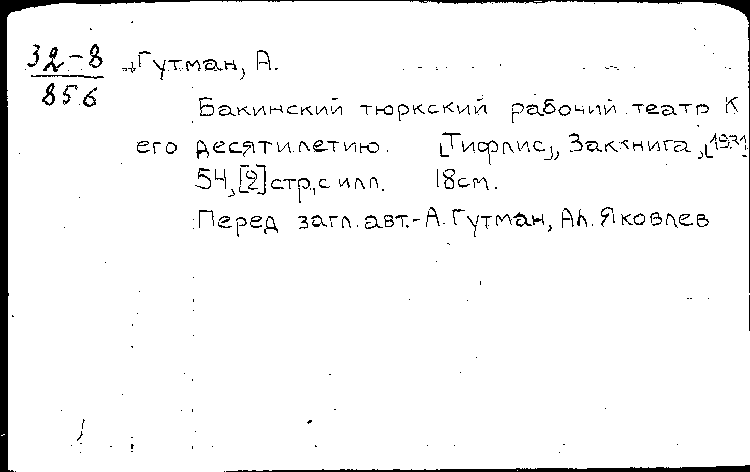 32-8
856
Гутман, А.
Бакинский тюркский рабочий театр К
его десятилетию. [Тифлис], Заккнига, [1931]
54, [2] стр, с илл. 18см.
Перед загл. авт.-А. Гутман, Ал. Яковлев